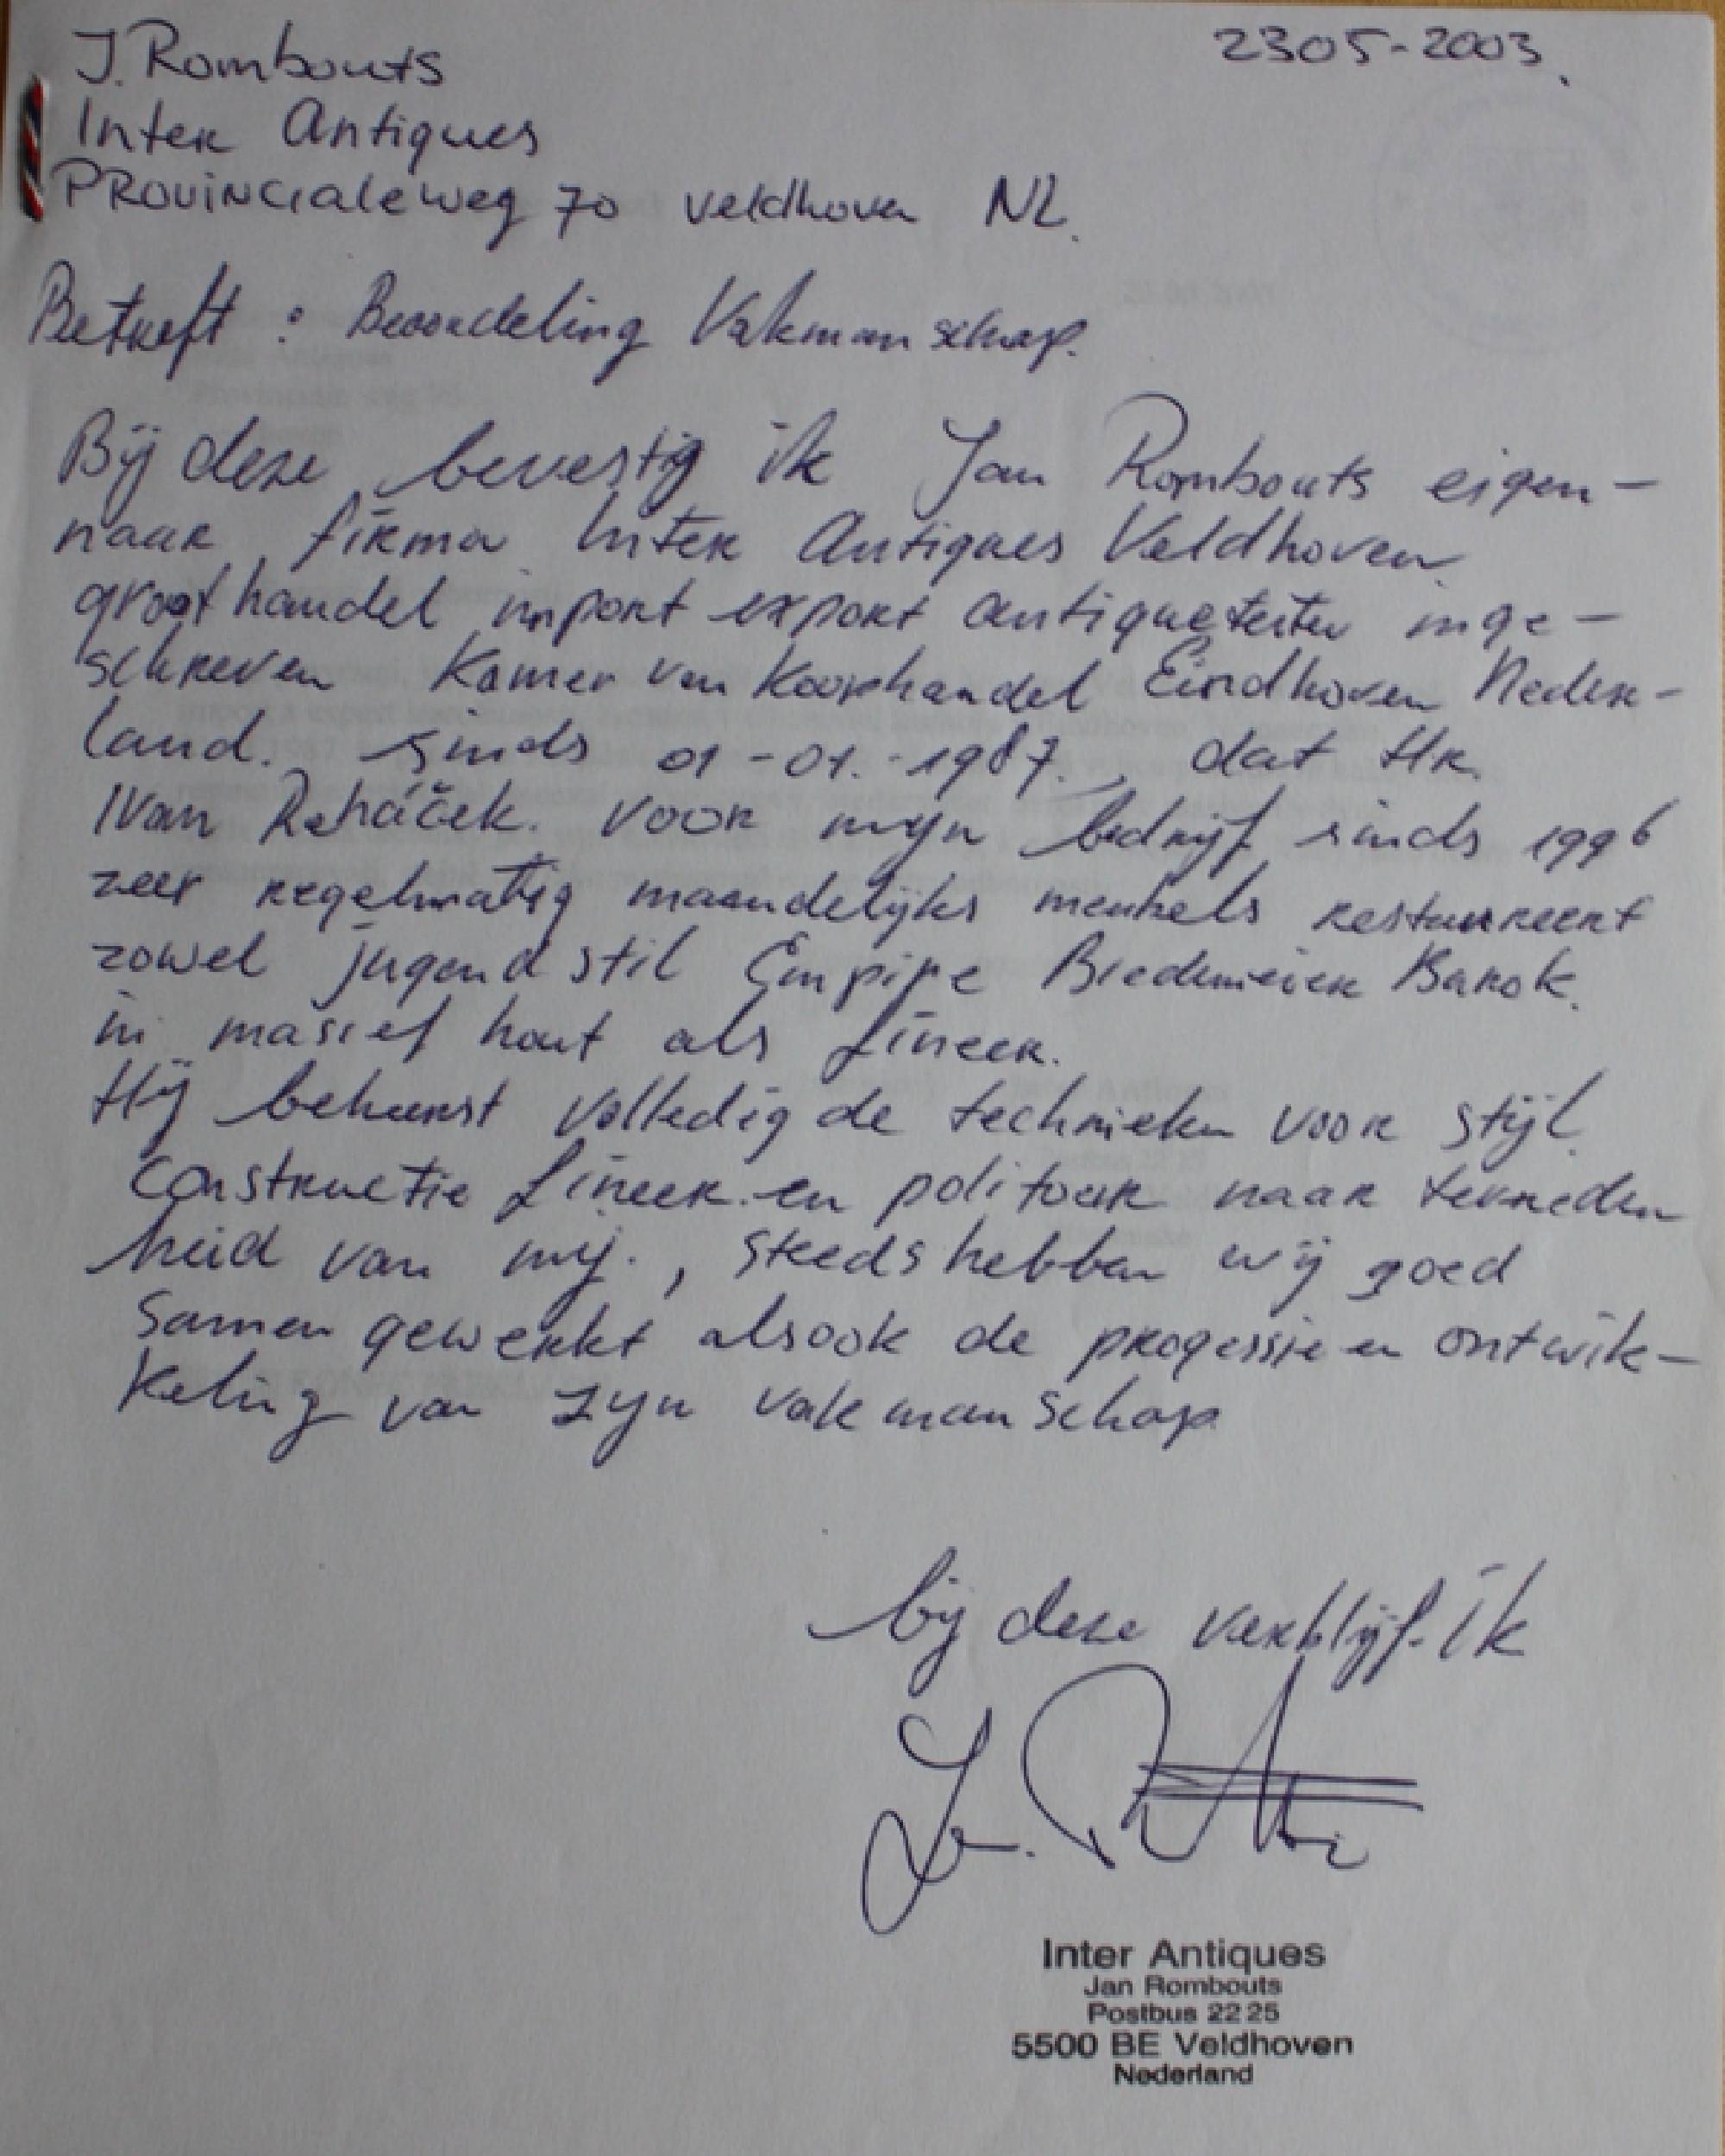 J. Rombouts
2305-2003.
Inter Antiques
Provincialeweg 70 Veldhoven NL.
Betreft : Beoordeling Vakmanschap.
Bij deze bevestig ik Jan Rombouts eigen-
naar firma Inter Antiques Veldhoven
groothandel import export antiqueteiten inge-
schreven Kamer van Koophandel Eindhoven Neder-
land. sinds 01-01.-1987., dat Hr.
Ivan Reháček. voor mijn bedrijf sinds 1996
zeer regelmatig maandelijks meubels restaureert
zowel jugendstil Empire Biedemeier Barok.
in massief hout als fineer.
Hij beheerst volledig de technieken voor stijl
Constructie fineer en politoer naar tevreden
heid van mij. , steeds hebben wij goed
samen gewerkt alsook de progessie en ontwik-
keling van zijn vakmanschap
bij deze verblijf ik
Inter Antiques
Jan Rombouts
Postbus 2225
5500 BE Veldhoven
Nederland